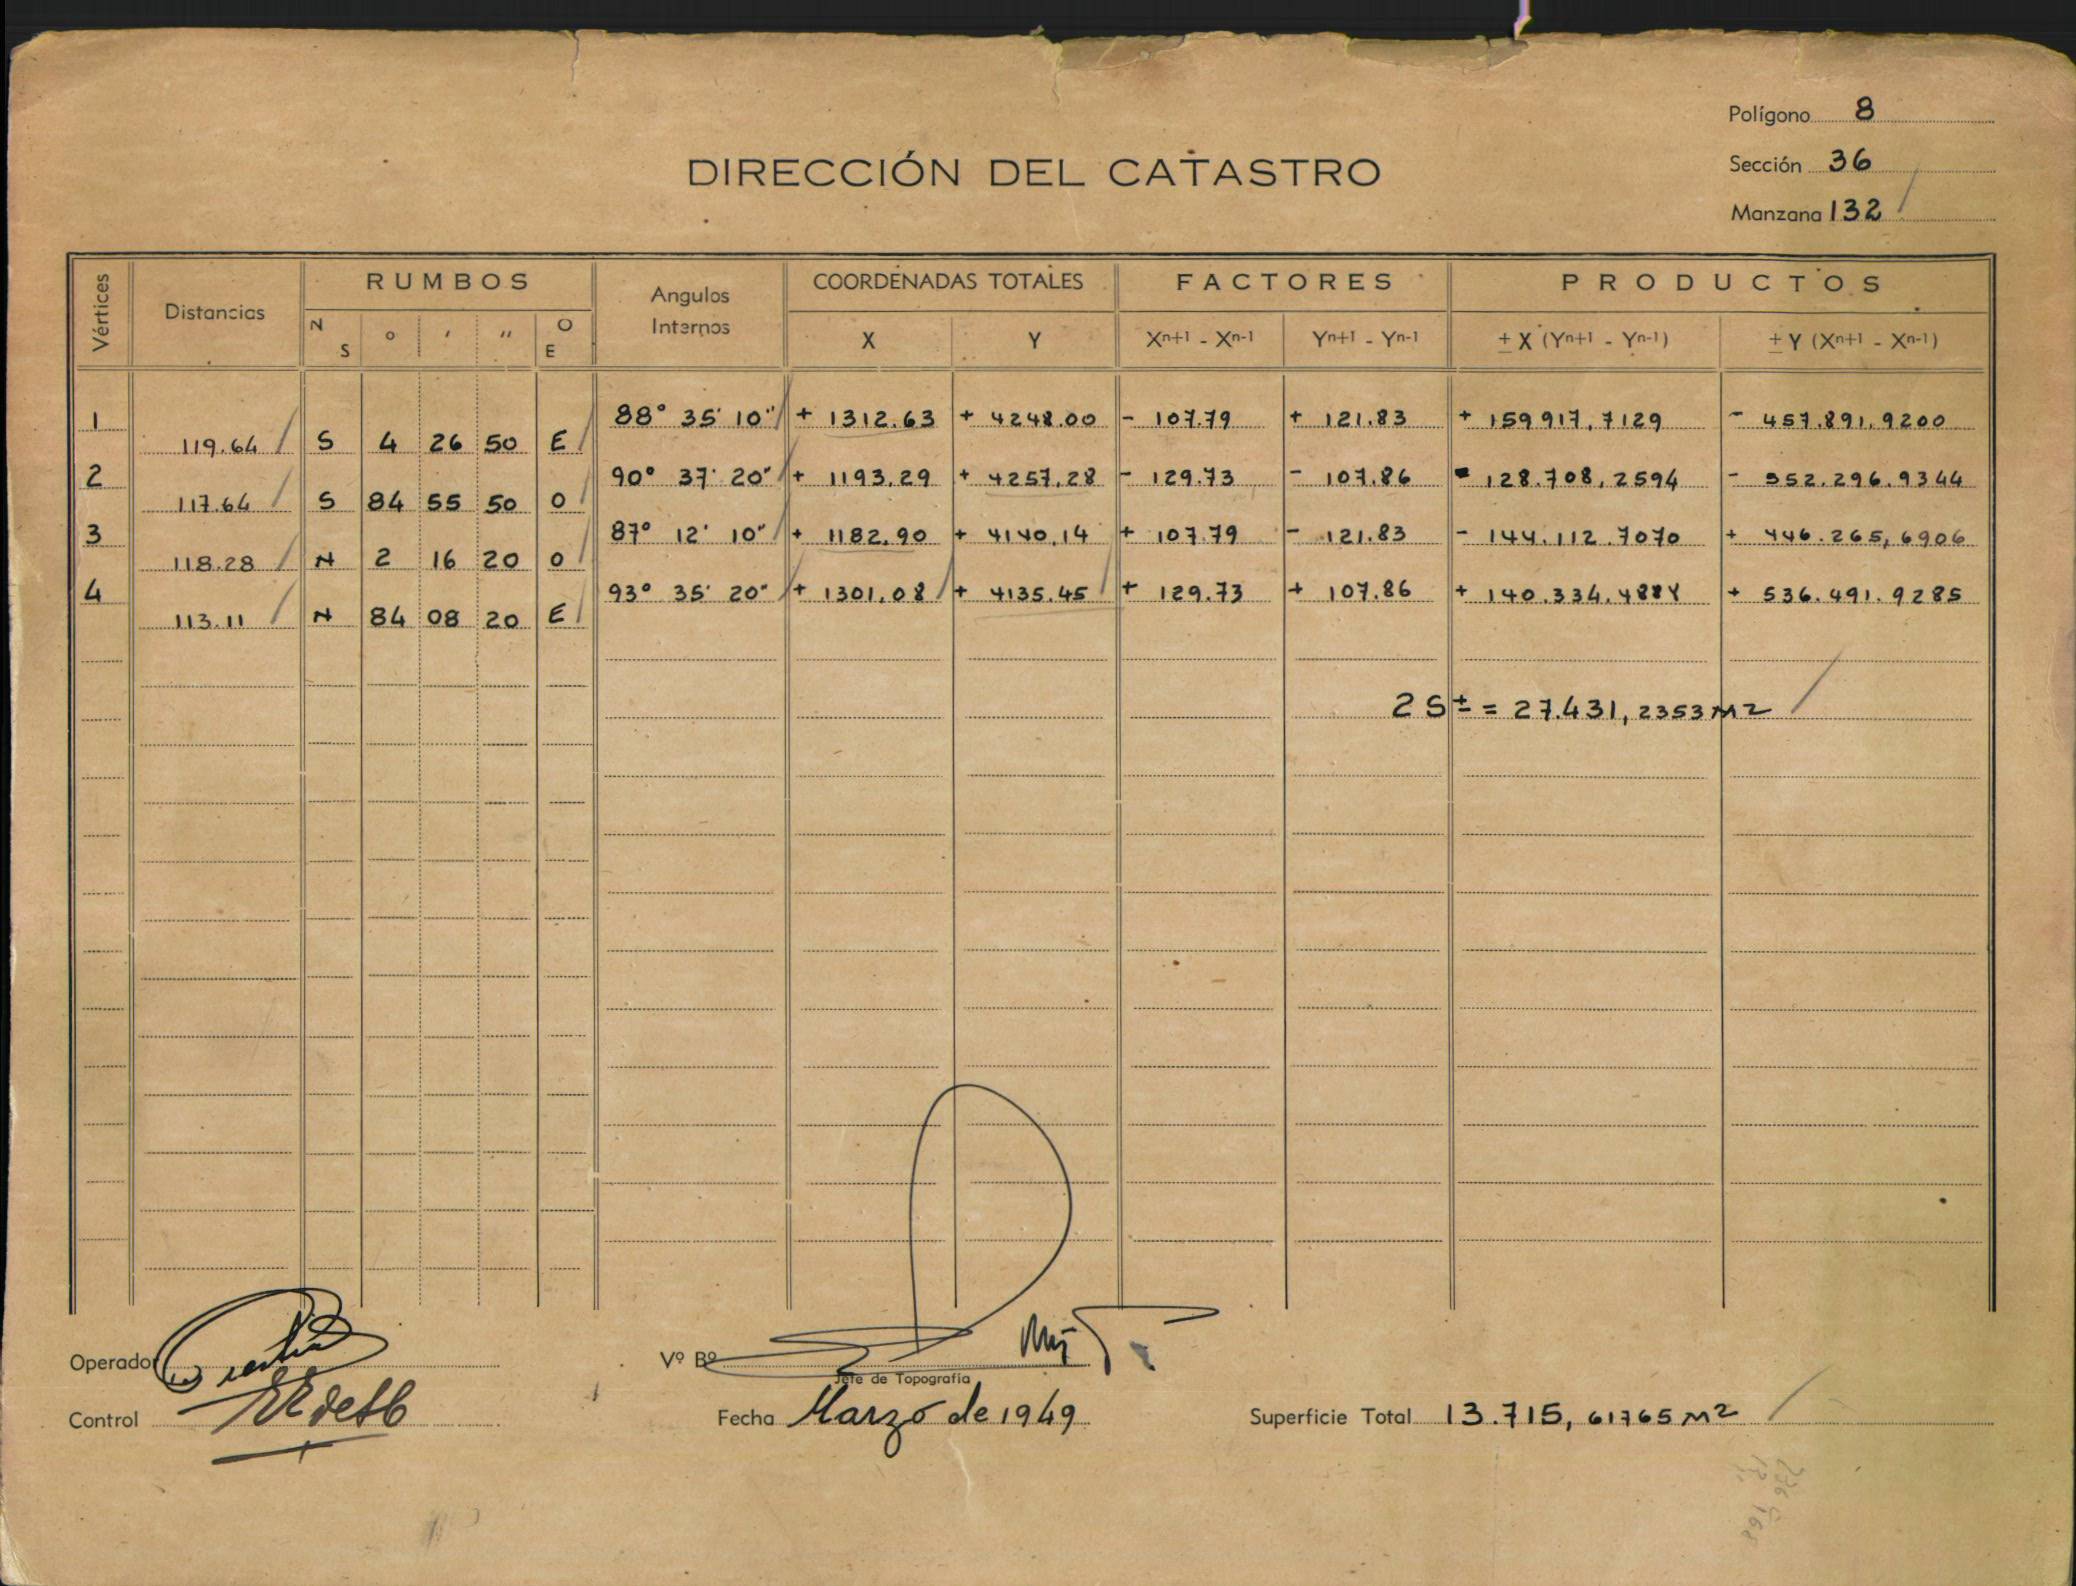 Polígono 8
DIRECCIÓN DEL CATASTRO
Sección 36
Manzana 132
Vértices Distancias RUMBOS Angulos Internos COORDENADAS TOTALES FACTORES PRODUCTOS
N S ° ' " O E X Y Xn+1 - Xn-1 Yn+1 - Yn-1 ± X (Yn+1 - Yn-1) ± Y (Xn+1 - Xn-1)
1 88° 35' 10" + 1312.63 + 4248.00 - 107.79 + 121.83 + 159917,7129 - 457.891.9200
119.64 S 4 26 50 E
2 90° 37' 20" + 1193.29 + 4257,28 - 129.73 - 107.86 - 128.708,2594 - 552.296.9344
117.64 S 84 55 50 O
3 87° 12' 10" + 1182.90 + 4140,14 + 107.79 - 121.83 - 144.112.7070 + 446.265,6906
118.28 N 2 16 20 O
4 93° 35' 20" + 1301,08 + 4135.45 + 129.73 + 107.86 + 140.334.4884 + 536.491.9285
113.11 N 84 08 20 E
2 S ± = 27.431, 2353 M2
Operador
Vº Bº
Jefe de Topografía
Control
Fecha Marzo de 1949
Superficie Total 13.715, 61765 M2